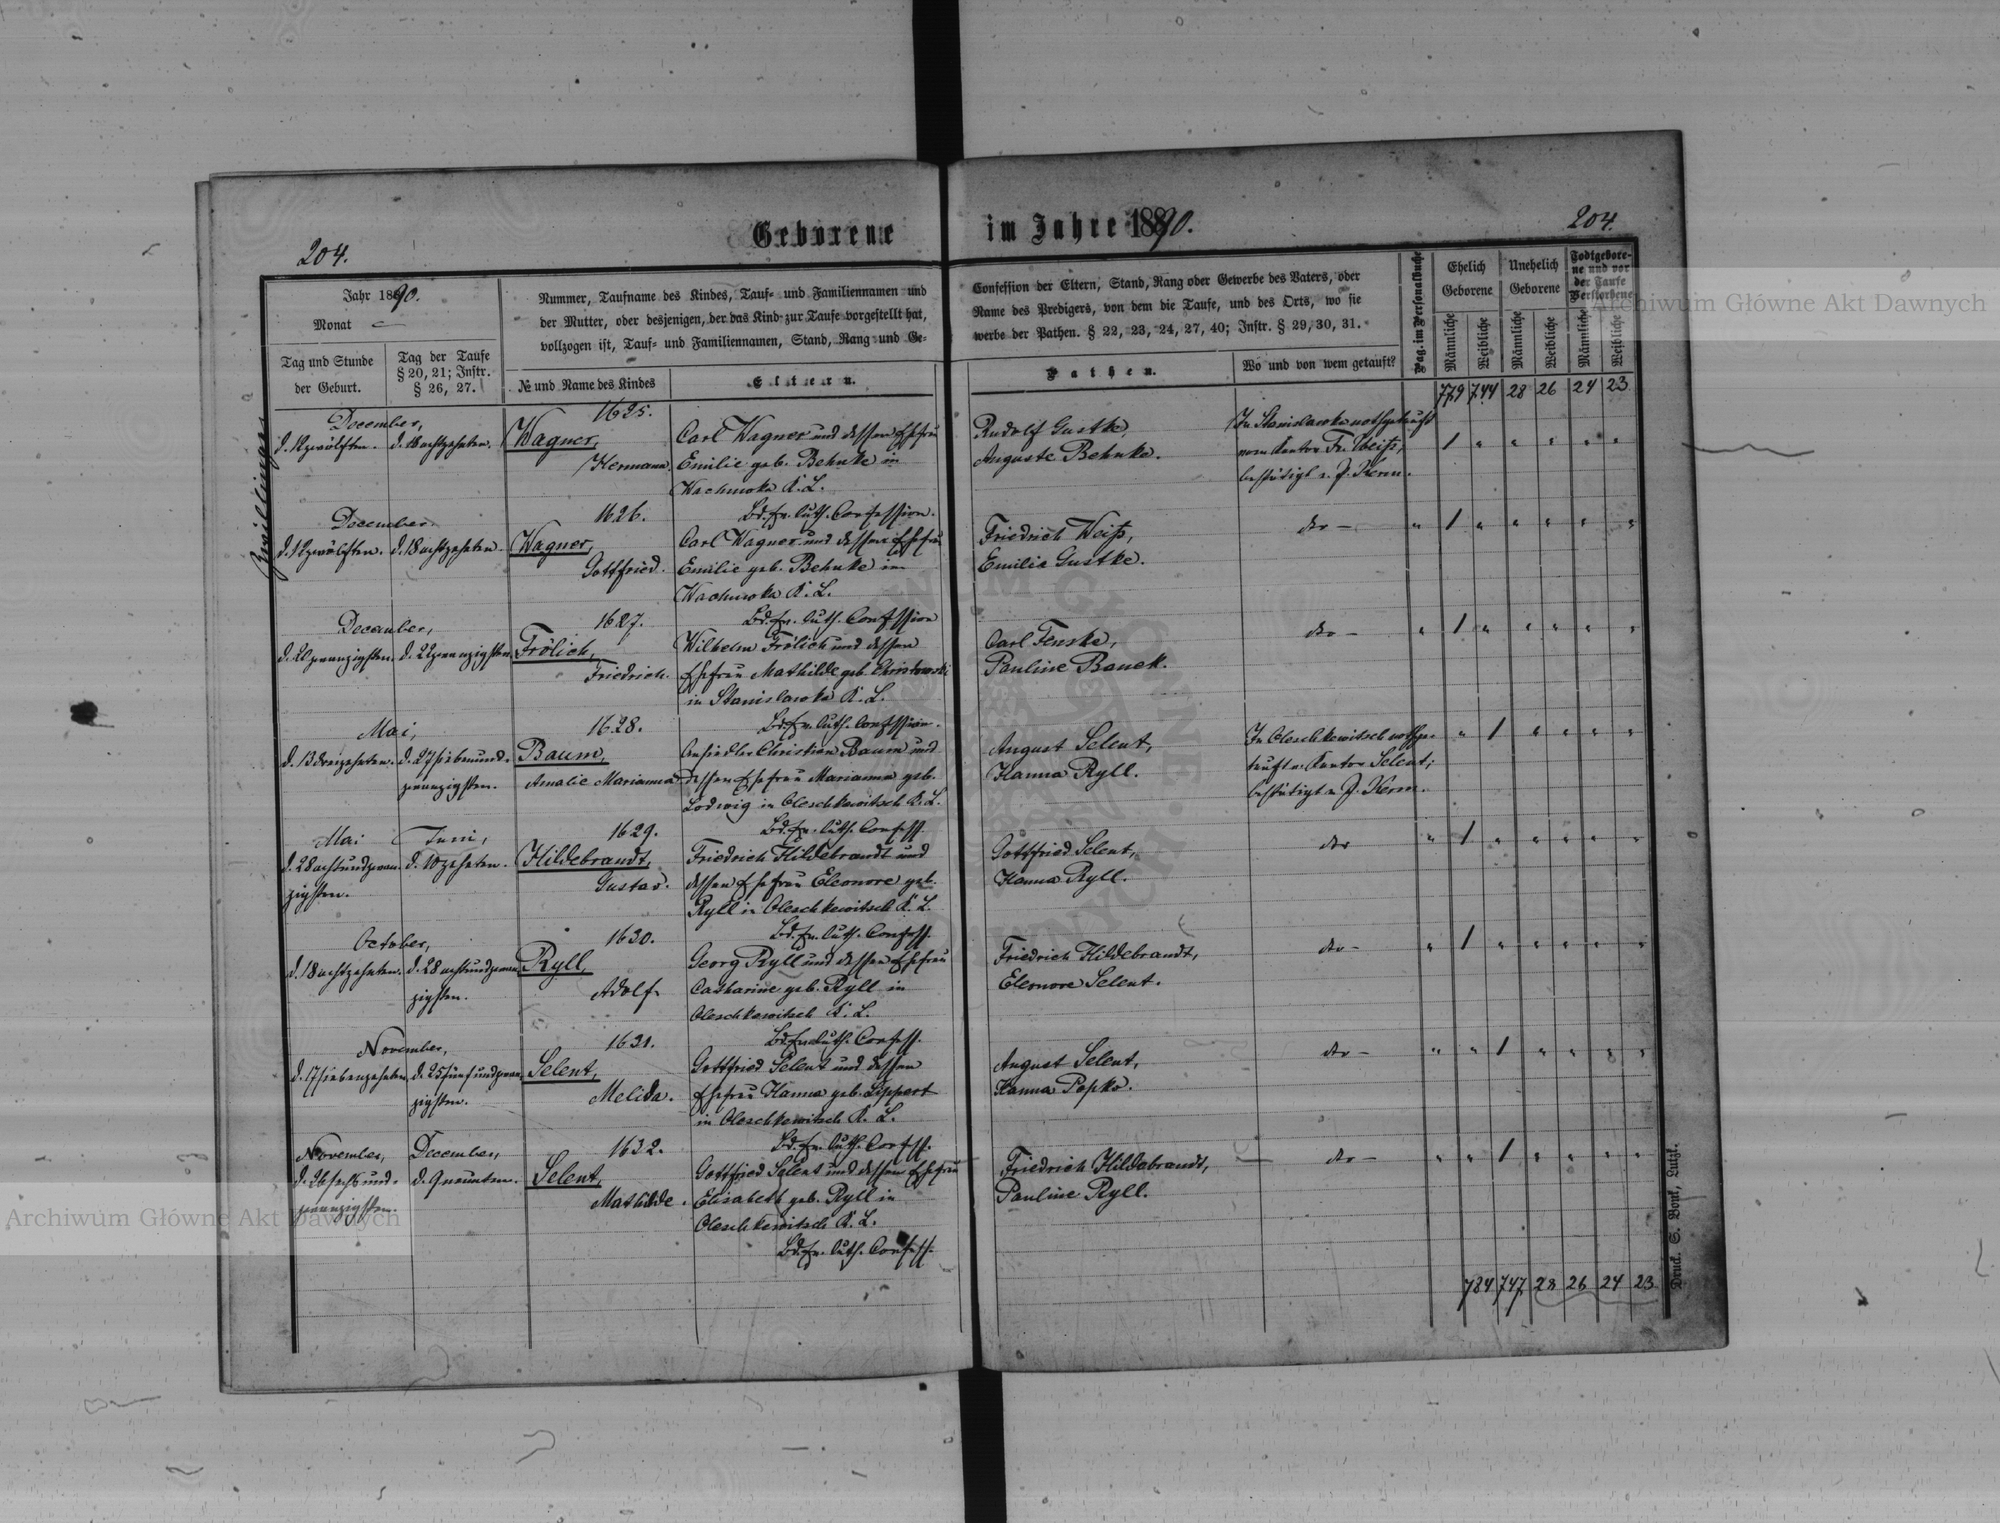 204.
Geborene im Jahre 1890.
204.
Jahr 1890.
Monat
Tag und Stunde
der Geburt.
Tag der Taufe
§ 20, 21; Instr.
§ 26, 27.
Nummer, Taufname des Kindes, Tauf- und Familiennamen und
der Mutter, oder desjenigen, der das Kind zur Taufe vorgestellt hat,
vollzogen ist, Tauf- und Familiennamen, Stand, Rang und Ge-
№ und Name des Kindes
Eltern.
Confession der Eltern, Stand, Rang oder Gewerbe des Vaters, oder
Name des Predigers, von dem die Taufe, und des Orts, wo sie
werbe der Pathen. § 22, 23, 24, 27, 40; Instr. § 29, 30, 31.
Pathen.
Wo und von wem getauft?
Pag. im Personalbuche
Ehelich
Geborene
Unehelich
Geborene
Todtgebore-
ne und vor
der Taufe
Verstorbene
Männliche
Weibliche
Männliche
Weibliche
Männliche
Weibliche
779 744 28 26 24 23
Zwillinge
December,
d. 12 zwölften. d. 18 achtzehnten.
1625.
Wagner,
Hermann.
Carl Wagner und dessen Ehefrau
Emilie geb. Behnke in
Wachnowka K. L.
Bd. Ev. luth. Confession.
Rudolf Gustke,
Auguste Behnke.
In Stanislawka nothgetauft
vom Kantor Fr. Weiß,
bestätigt v. P. Kerm.
1 " " " " "
December.
d. 12 zwölften. d. 18 achtzehnten.
1626.
Wagner,
Gottfried.
Carl Wagner und dessen Ehefrau
Emilie geb. Behnke in
Wachnowka K. L.
Bd. Ev. luth. Confession
Friedrich Weiß,
Emilie Gustke.
dto —
" 1 " " " " "
December,
d. 20 zwanzigsten. d. 22 zwanzigsten
1627.
Frölich,
Friedrich.
Wilhelm Frölich und dessen
Ehefrau Mathilde geb. Christowski
in Stanislawka K. L.
Bd. Ev. luth. Confession.
Carl Fenske,
Pauline Banek.
dto —
" 1 " " " " "
Mai,
d. 13 dreizehnten. d. 27 siebenund-
zwanzigsten.
1628.
Baum,
Amalie Marianna
Ansiedler Christian Baum und
dessen Ehefrau Marianna geb.
Lodwig in Oleschkewitsch K. L.
Bd. Ev. luth. Confess.
August Selent,
Hanna Ryll.
In Oleschkewitsch nothge-
tauft v. Kantor Selent;
bestätigt v. P. Kerm.
" 1 " " " "
Mai Juni,
d. 28 achtundzwan- d. 10 zehnten.
zigsten.
1629.
Hildebrandt,
Gustav.
Friedrich Hildebrandt und
dessen Ehefrau Eleonore geb.
Ryll in Oleschkewitsch K. L.
Bd. Ev. luth. Confess.
Gottfried Selent,
Hanna Ryll.
dto
" 1 " " " " "
October,
d. 18 achtzehnten. d. 28 achtundzwan-
zigsten.
1630.
Ryll,
Adolf.
Georg Ryll und dessen Ehefrau
Catharine geb. Ryll in
Oleschkewitsch K. L.
Bd. Ev. luth. Confess.
Friedrich Hildebrandt,
Eleonore Selent.
dto —
" 1 " " " " "
November,
d. 17 siebenzehnten d. 25 fünfundzwan-
zigsten.
1631.
Selent,
Melida.
Gottfried Selent und dessen
Ehefrau Hanna geb. Lippert
in Oleschkewitsch K. L.
Bd. Ev. luth. Confess.
August Selent,
Hanna Popko.
dto —
" " 1 " " " "
November, December,
d. 26 sechsund- d. 9 neunten.
zwanzigsten.
1632.
Selent,
Mathilde.
Gottfried Selent und dessen Ehefrau
Elisabeth geb. Ryll in
Oleschkewitsch K. L.
Bd. Ev. luth. Confess.
Friedrich Hildebrandt,
Pauline Ryll.
dto —
" " 1 " " " "
784 747 28 26 24 23
Druck. S. Bonk, Lutzk.
Archiwum Główne Akt Dawnych
Archiwum Główne Akt Dawnych